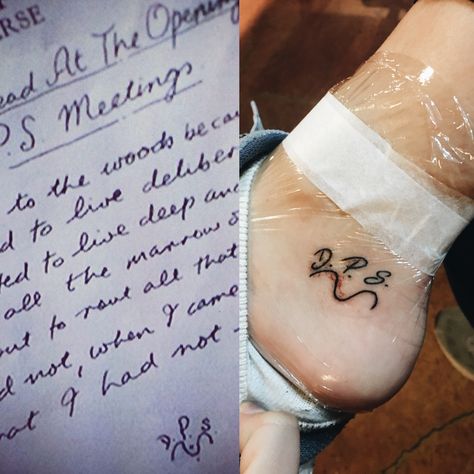 ERSE
ead At The Opening
P.S. Meetings
to the woods becau
d to live deliber
ted to live deep and
all the marrow o
out to rout all that
d not, when I came
hat I had not -
D P S
D. P. S.